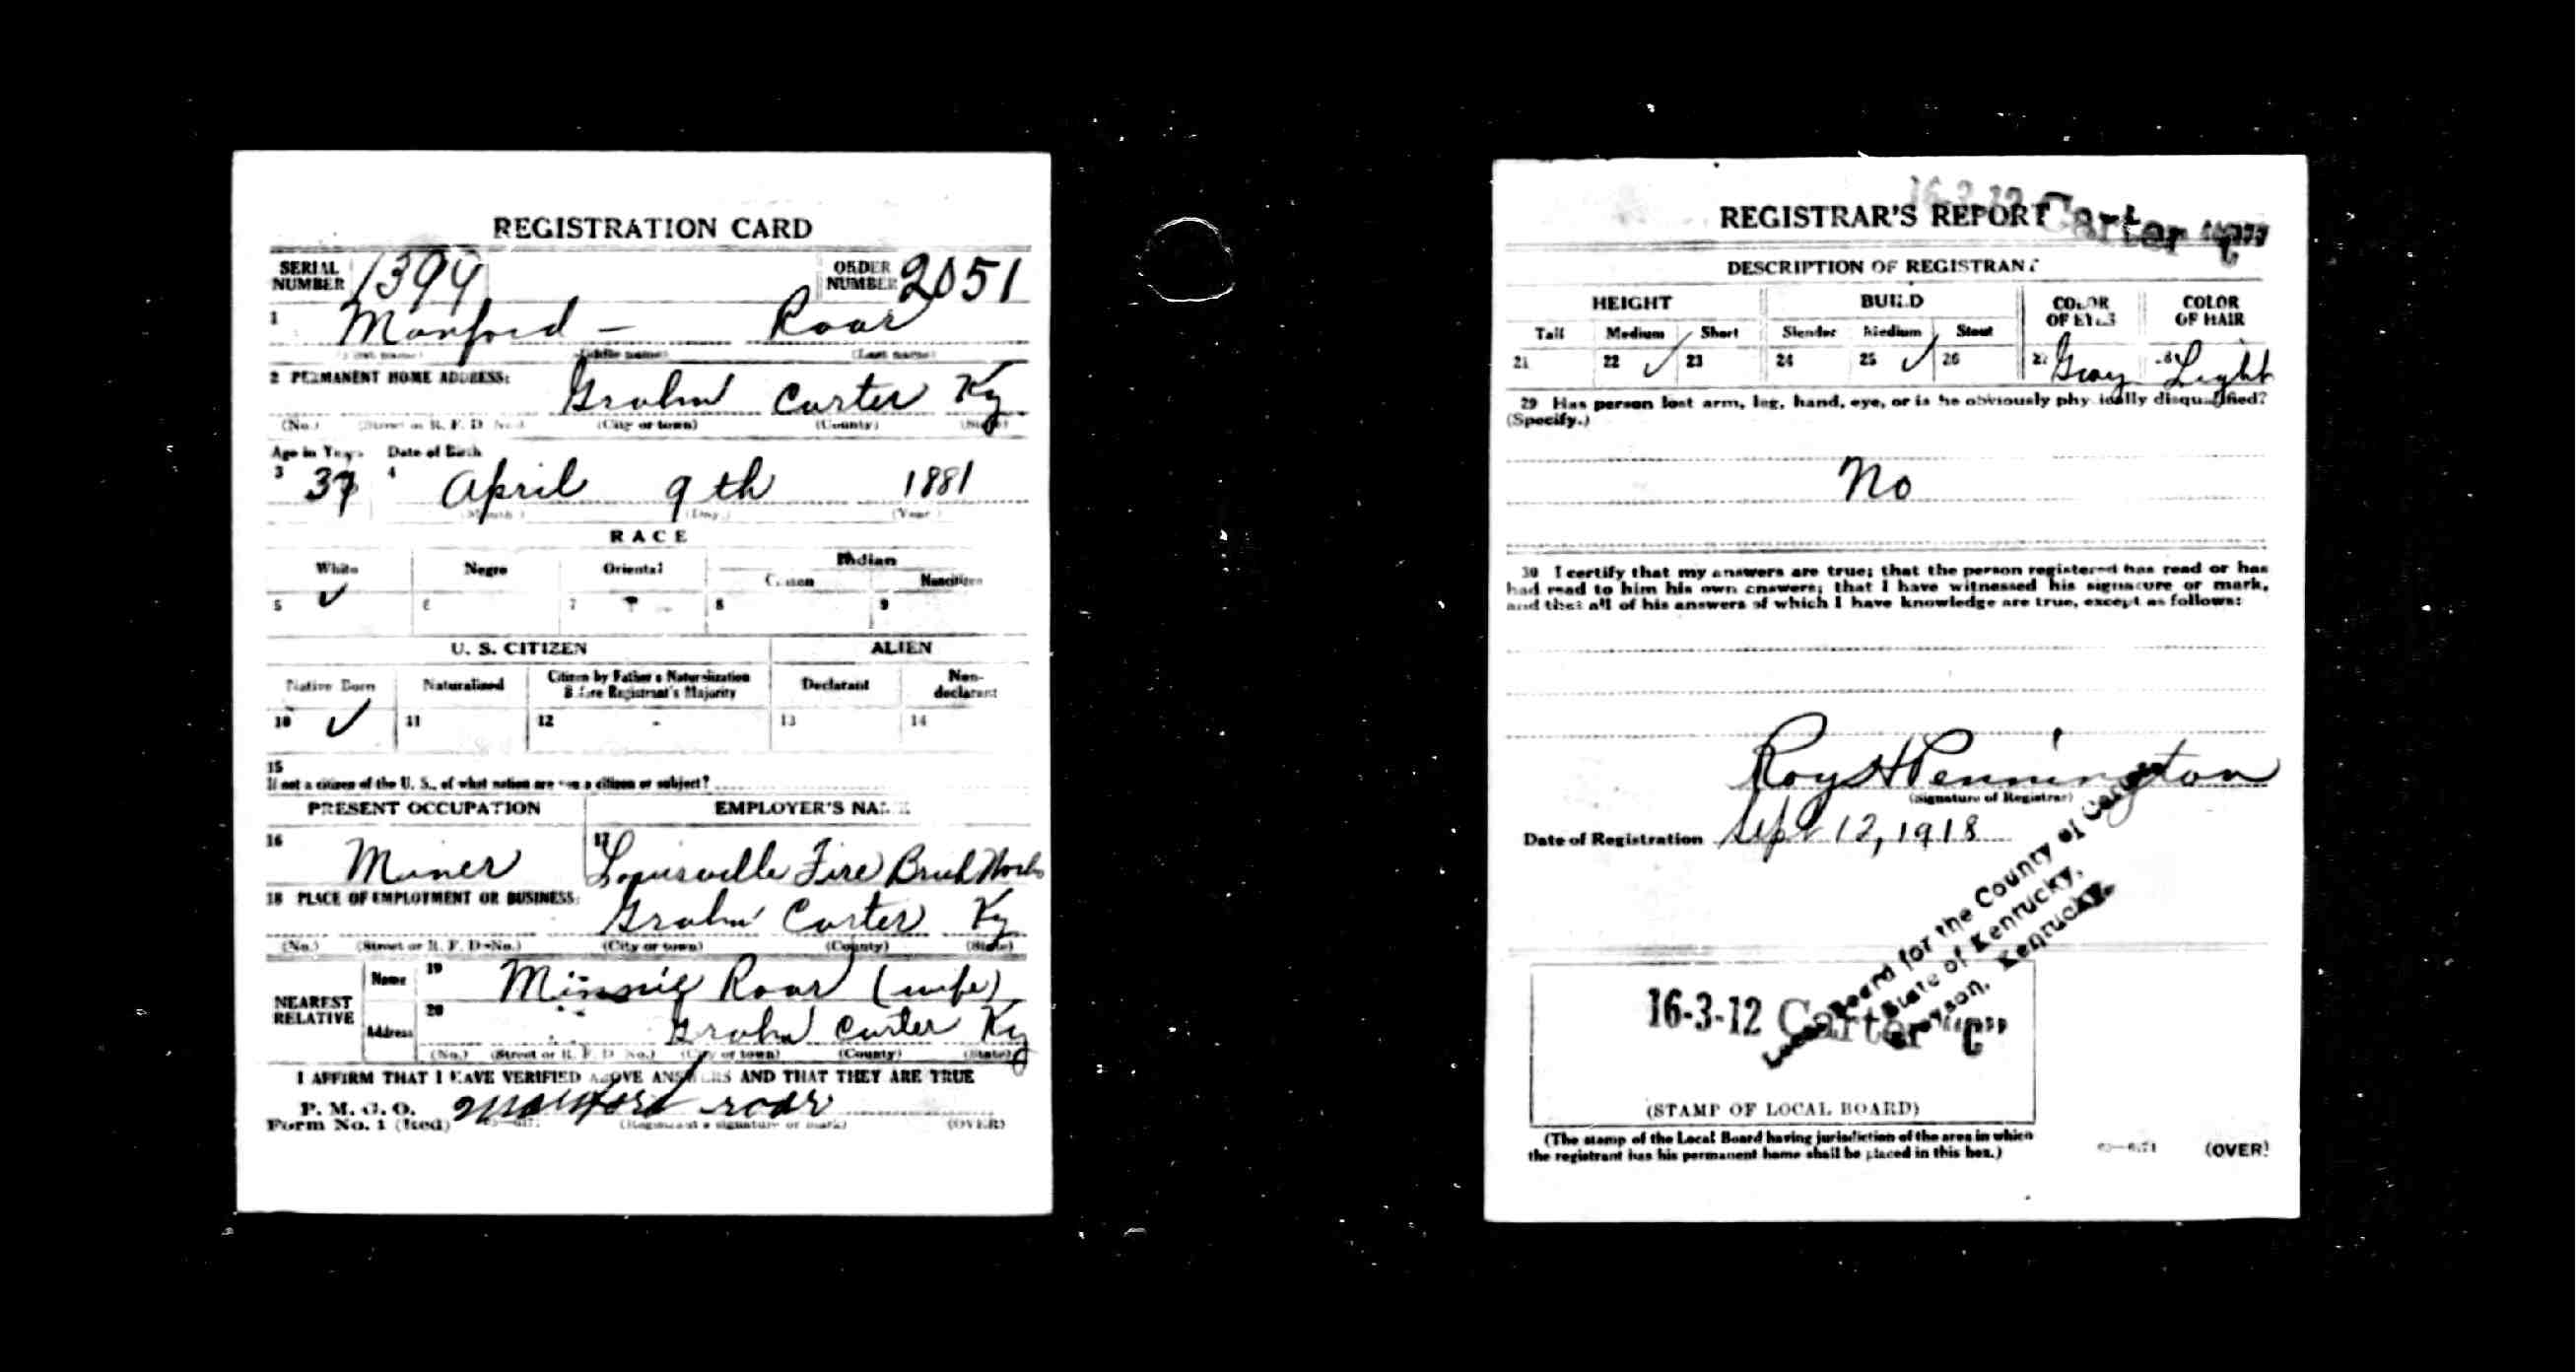 REGISTRATION CARD
SERIAL NUMBER 1394 ORDER NUMBER 2051
1 Manford — Roar
(First name) (Middle name) (Last name)
2 PERMANENT HOME ADDRESS:
Grahn Carter Ky
(No.) (Street or R. F. D. No.) (City or town) (County) (State)
Age in Years Date of Birth
3 37 4 April 9th 1881
(Month) (Day) (Year)
RACE
White Negro Oriental Indian
Citizen Noncitizen
5 ✓ 6 7 8 9
U. S. CITIZEN ALIEN
Native Born Naturalized Citizen by Father's Naturalization Before Registrant's Majority Declarant Non-declarant
10 ✓ 11 12 13 14
15
If not a citizen of the U. S., of what nation are you a citizen or subject?
PRESENT OCCUPATION EMPLOYER'S NAME
16 Miner 17 Louisville Fire Brick Works
18 PLACE OF EMPLOYMENT OR BUSINESS:
Grahn Carter Ky
(No.) (Street or R. F. D. No.) (City or town) (County) (State)
NEAREST RELATIVE
Name 19 Minnie Roar (wife)
Address 20 Grahn Carter Ky
(No.) (Street or R. F. D. No.) (City or town) (County) (State)
I AFFIRM THAT I HAVE VERIFIED ABOVE ANSWERS AND THAT THEY ARE TRUE
P. M. G. O.
Form No. 1 (Red) Manford roar
(Registrant's signature or mark) (OVER)
16-3-12 Carter
REGISTRAR'S REPORT
DESCRIPTION OF REGISTRANT
HEIGHT BUILD COLOR OF EYES COLOR OF HAIR
Tall Medium Short Slender Medium Stout
21 22 ✓ 23 24 25 ✓ 26 27 Gray 28 Light
29 Has person lost arm, leg, hand, eye, or is he obviously physically disqualified?
(Specify.)
No
30 I certify that my answers are true; that the person registered has read or has
had read to him his own answers; that I have witnessed his signature or mark,
and that all of his answers of which I have knowledge are true, except as follows:
Roy H Pennington
(Signature of Registrar)
Date of Registration Sept 12, 1918
Local Board for the County of Carter
State of Kentucky,
Grayson, Kentucky.
16-3-12 Carter
(STAMP OF LOCAL BOARD)
(The stamp of the Local Board having jurisdiction of the area in which
the registrant has his permanent home shall be placed in this box.)
(OVER)